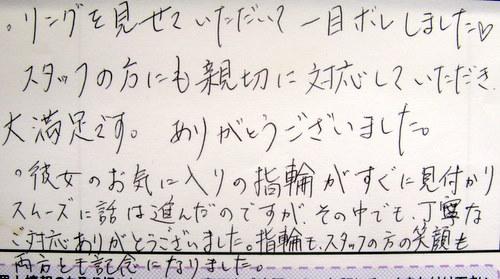 。リングを見せていただいて一目ボレしました♡
スタッフの方にも親切に対応していただき
大満足です。ありがとうございました。
。彼女のお気に入りの指輪がすぐに見付かり
スムーズに話は進んだのですが、その中でも、丁寧な
ご対応ありがとうございました。指輪も、スタッフの方の笑顔も
両方とも記念になりました。